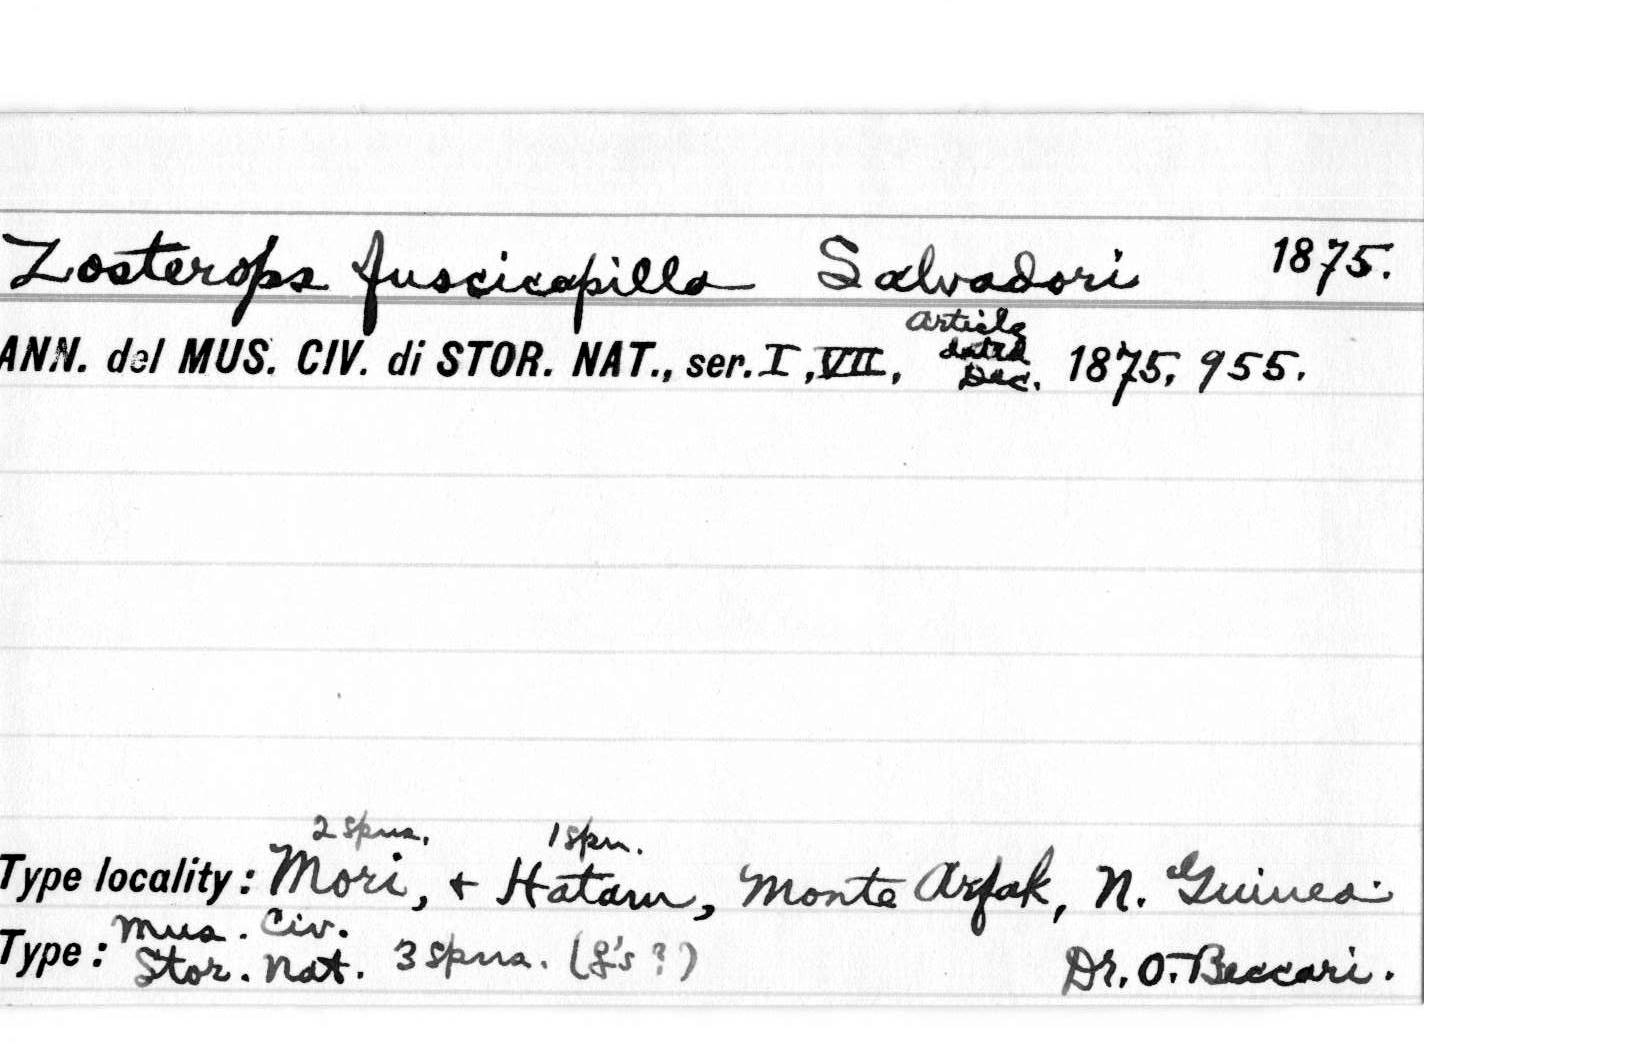 Zosterops fuscicapilla Salvadori 1875.
ANN. del MUS. CIV. di STOR. NAT., ser. I, VII, Article dated Dec. 1875, 955.
2 spns. 1 spn.
Type locality: Mori, + Hatam, Monte Arfak, N. Guinea.
Type: Mus. Civ.
Stor. Nat. 3 spns. ( ?) Dr. O. Beccari.